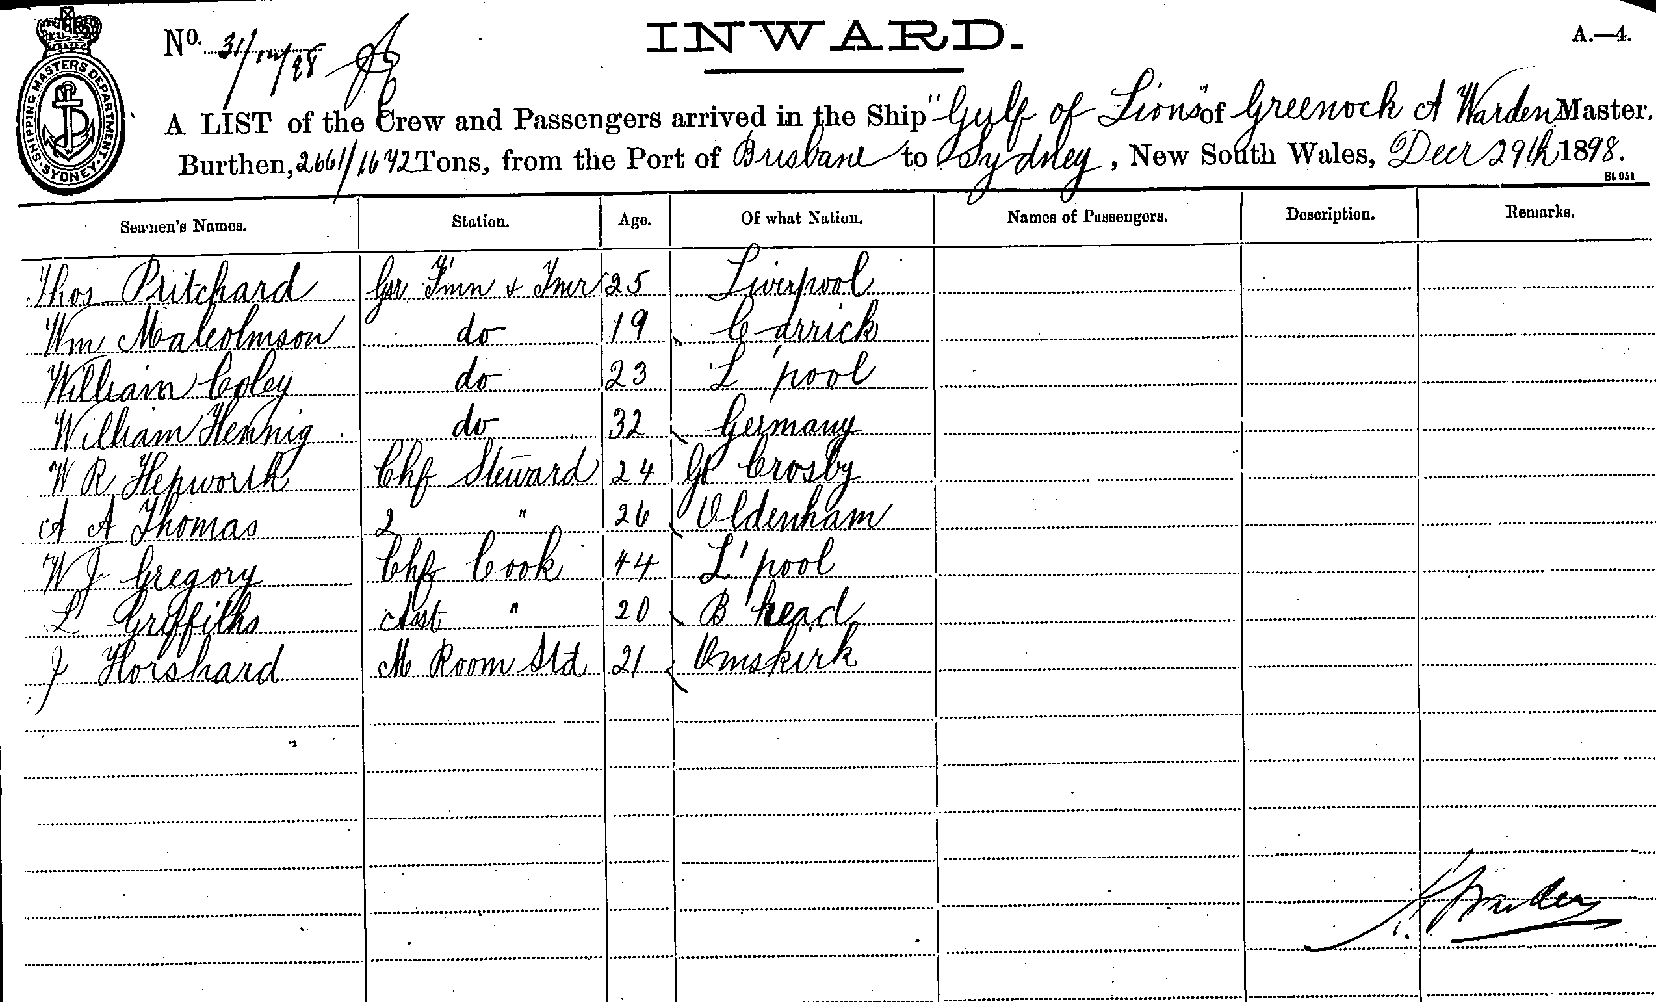 INWARD.
A.—4.
No. 31/12/98
SHIPPING MASTERS DEPARTMENT SYDNEY
A LIST of the Crew and Passengers arrived in the Ship "Gulf of Lions" of Greenock A Warden Master.
Burthen, 2661/1642 Tons, from the Port of Brisbane to Sydney, New South Wales, Decr 29th 1898.
Seamen's Names. Station. Age. Of what Nation. Names of Passengers. Description. Remarks.
Thos Pritchard Gsr Fmn & Tmr 25 Liverpool
Wm Malcolmson do 19 Carrick
William Coley do 23 L'pool
William Hennig do 32 Germany
W R Hepworth Chf Steward 24 Gt Crosby
A A Thomas 2 " 26 Oldenham
W J Gregory Chf Cook 44 L'pool
L Griffiths Asst " 20 B'head
J Horshard M Room Std 21 Omskirk
A Warden